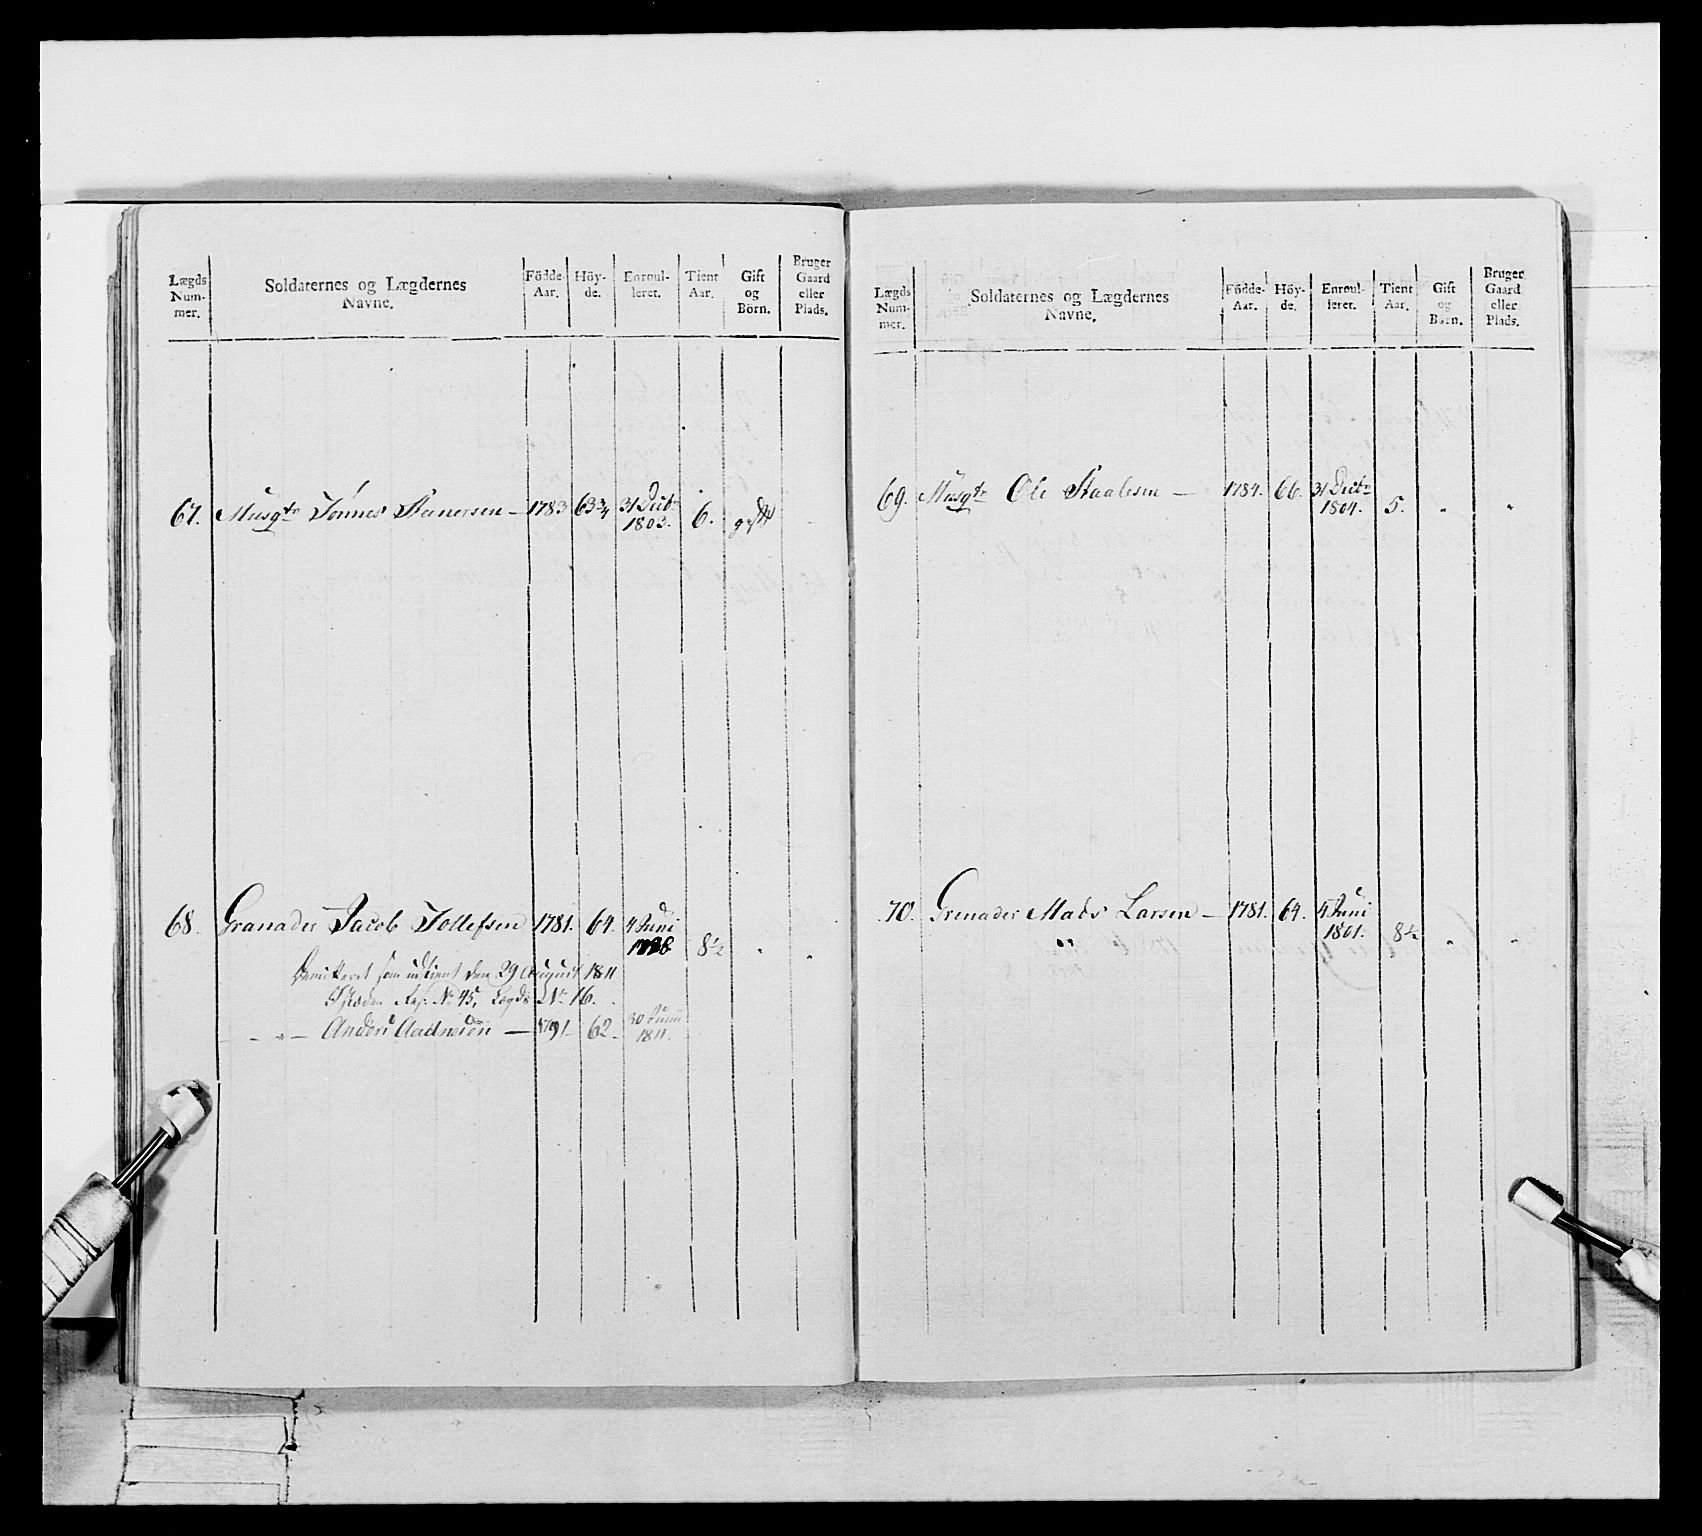 Lægds Num- mer.
Soldaternes og Lægdernes Navne.
Födde- Aar.
Höy- de.
Enroul- leret.
Tient Aar.
Gift og Börn.
Bruger Gaard eller Plads.
67. Musqtr Tönnes Steenersen — 1783 63¾ 31 Decbr 1803. 6. gift
68. Granader Jacob Tollefsen 1781. 64. 4 Juni 8½ "
som udtient den 29 August 1811
I steden Res. No 45, Lægds No 16.
- - " - Anders — 1791 62 30 Juni 1811.
Lægds Num- mer.
Soldaternes og Lægdernes Navne.
Födde- Aar.
Höy- de.
Enroul- leret.
Tient Aar.
Gift og Börn.
Bruger Gaard eller Plads.
69. Musqtr Ole Staalesen — 1784. 66. 31 Decbr 1804. 5. " "
70. Grenader Mads Larsen — 1781. 64. 4 Juni 1801. 8½ " "